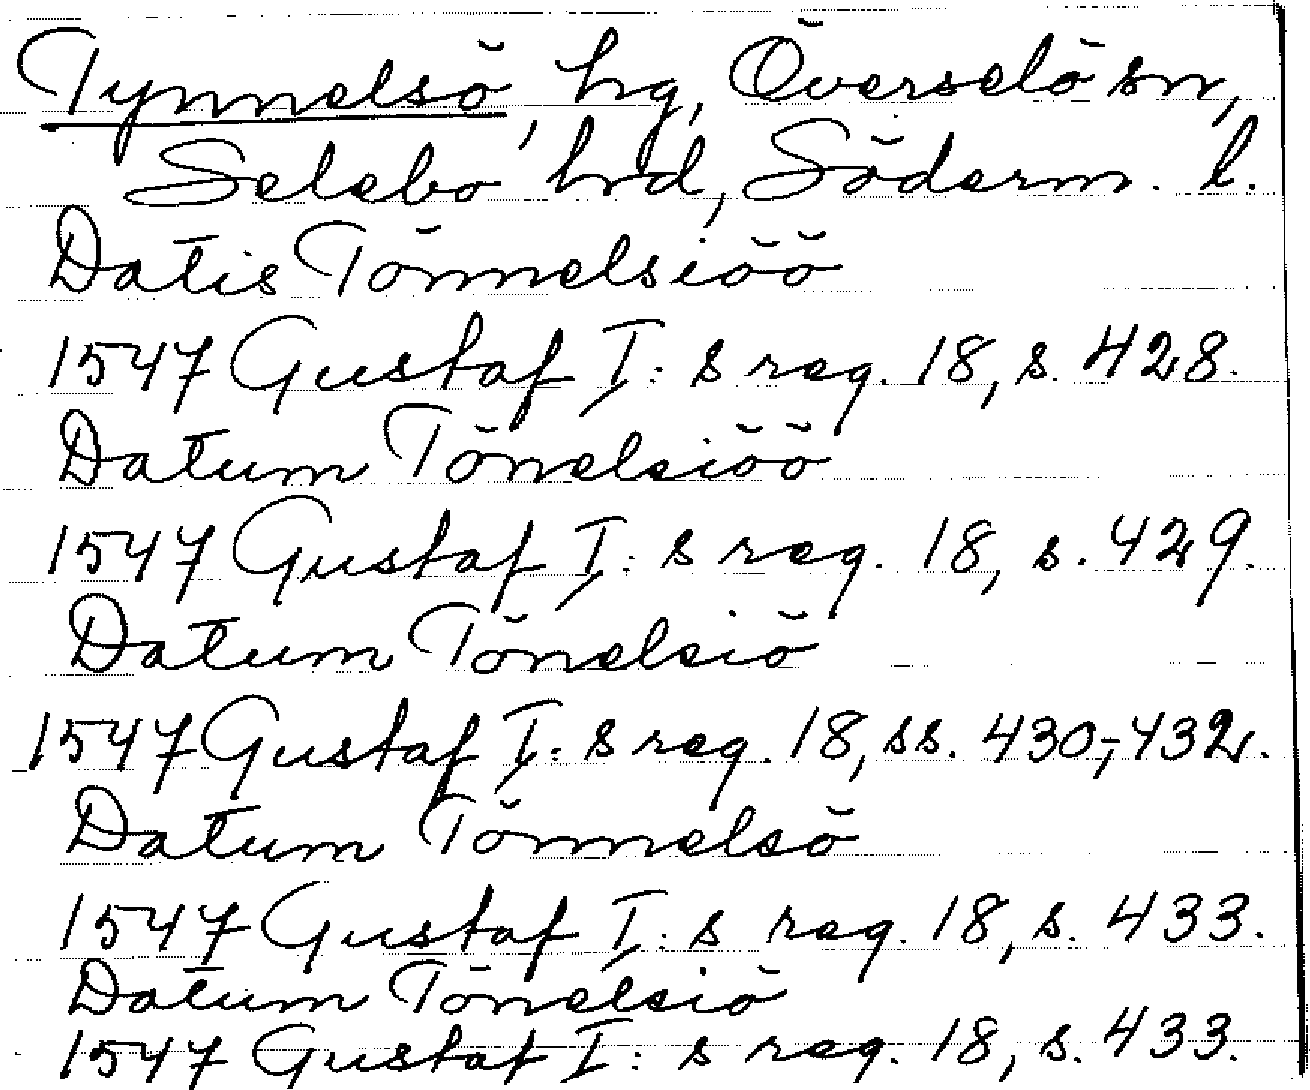 Tynnelsö, hg, Överselö sn,
Selebo hrd, Söderm. l.
Datis Tönnelsiöö
1547 Gustaf I:s reg. 18, s. 428.
Datum Tönelsiöö
1547 Gustaf I:s reg. 18, s. 429.
Datum Tönelsiö
1547 Gustaf I:s reg. 18, ss. 430,-432.
Datum Tönnelsö
1547 Gustaf I:s reg. 18, s. 433.
Datum Tönelsiö
1547 Gustaf I:s reg. 18, s. 433.